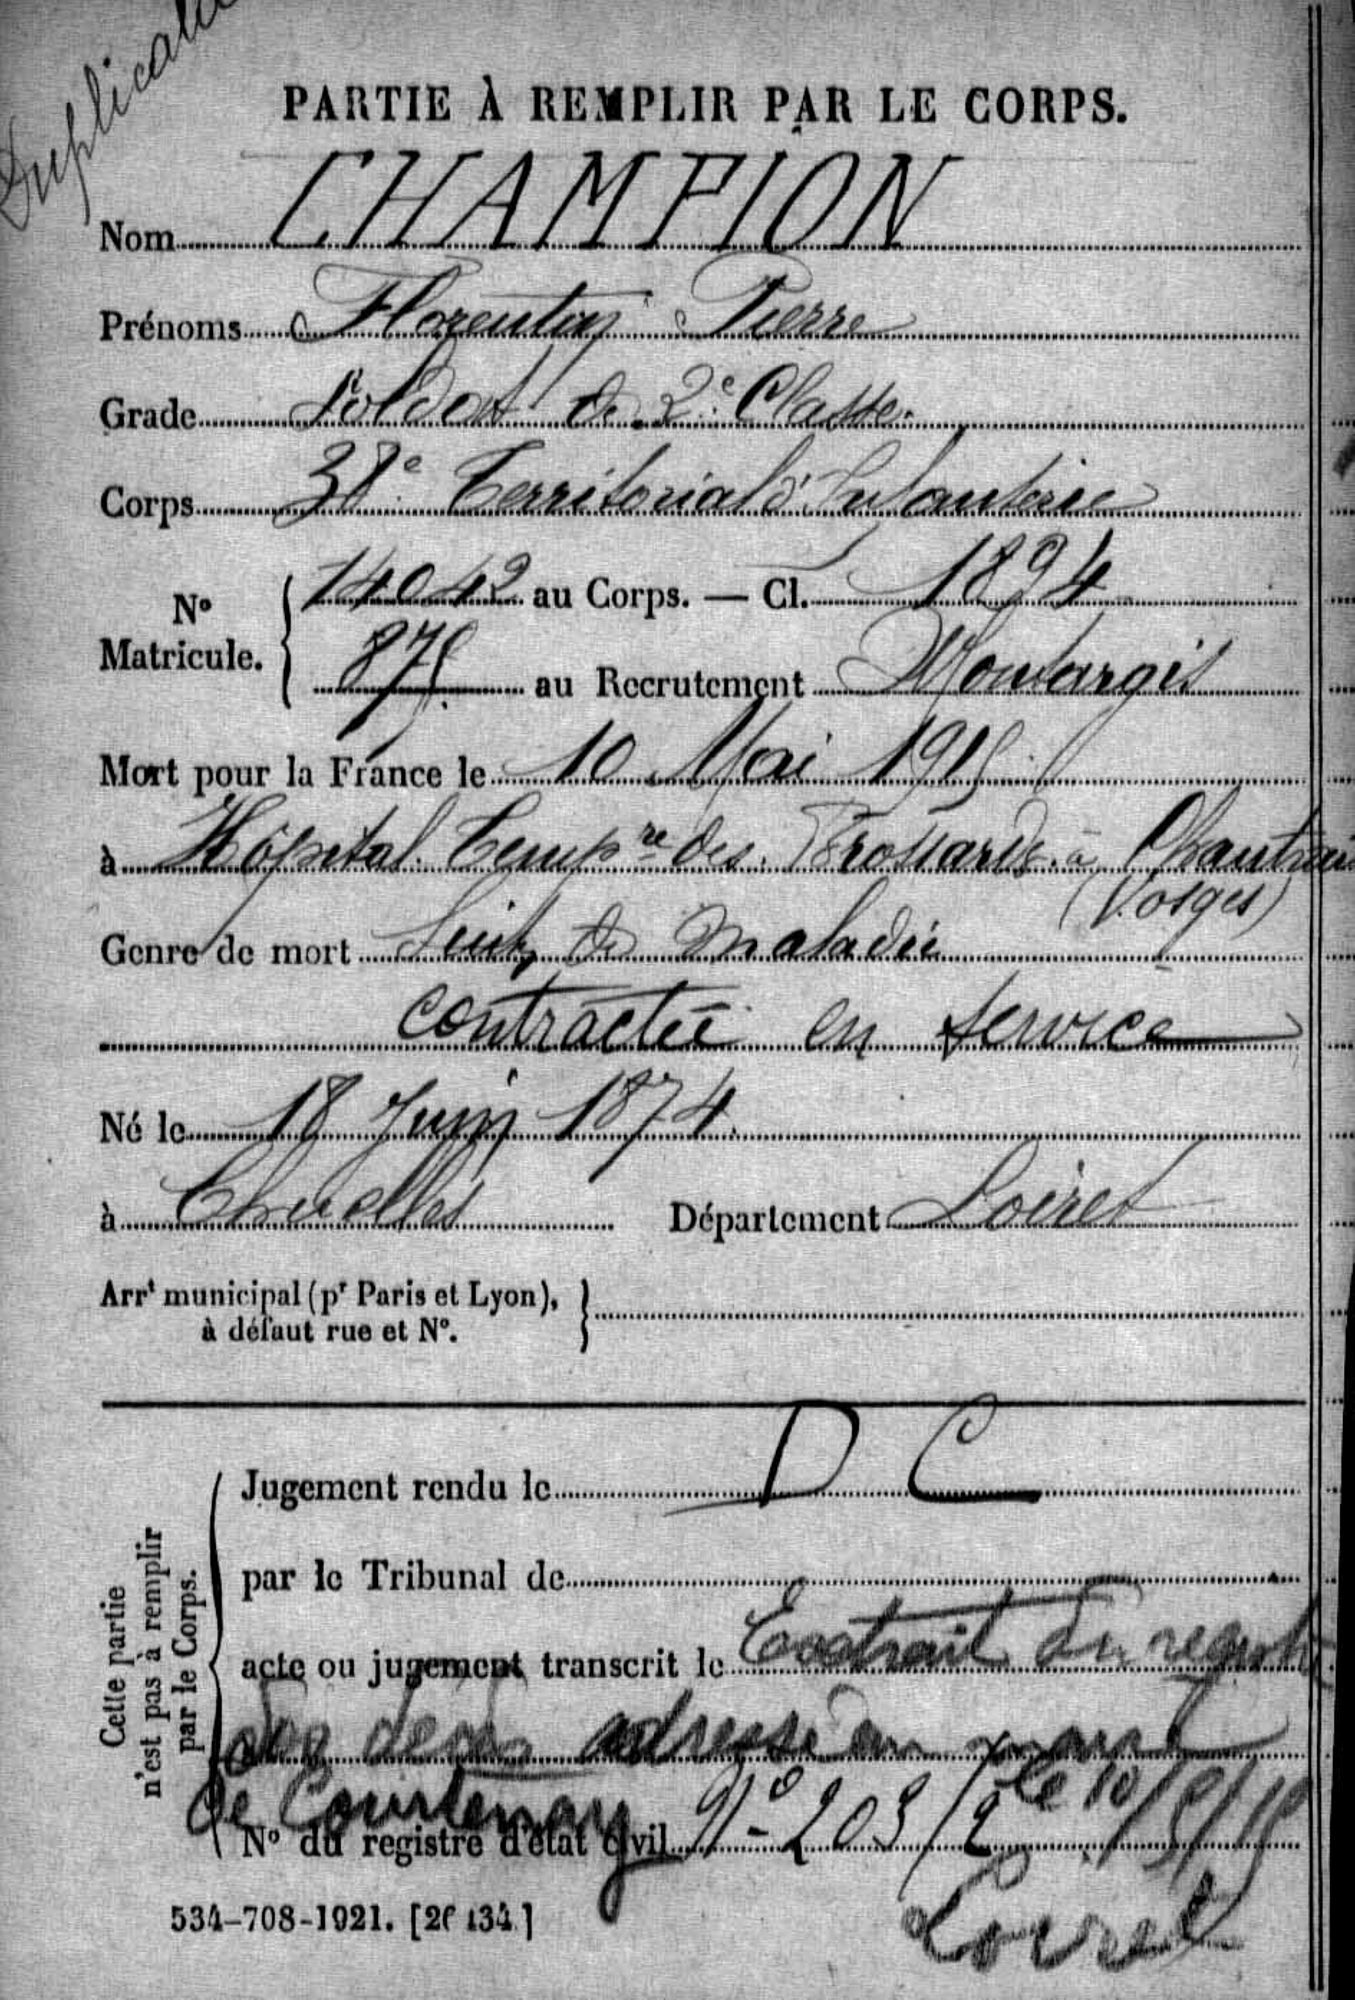 Duplicata
PARTIE À REMPLIR PAR LE CORPS.
Nom CHAMPION
Prénoms Florentin Pierre
Grade Soldat de 2e Classe.
Corps 38e Territorial d'Infanterie
No Matricule. { 14042 au Corps. — Cl. 1894
875. au Recrutement Montargis
Mort pour la France le 10 Mai 1915
à Hôpital Tempre des Brossards à Chantraine
(Vosges)
Genre de mort Suite de maladie
contractée en service
Né le 18 Juin 1874.
à Chuelles Département Loiret
Arrt municipal (pr Paris et Lyon), à défaut rue et No. }
D C
Cette partie n'est pas à remplir par le Corps.
Jugement rendu le
par le Tribunal de
acte ou jugement transcrit le Extrait du registre
des décès adressé au
de Courtenay le 10/5/15
No du registre d'état civil No 203/2
Loiret
534-708-1921. [26134.]